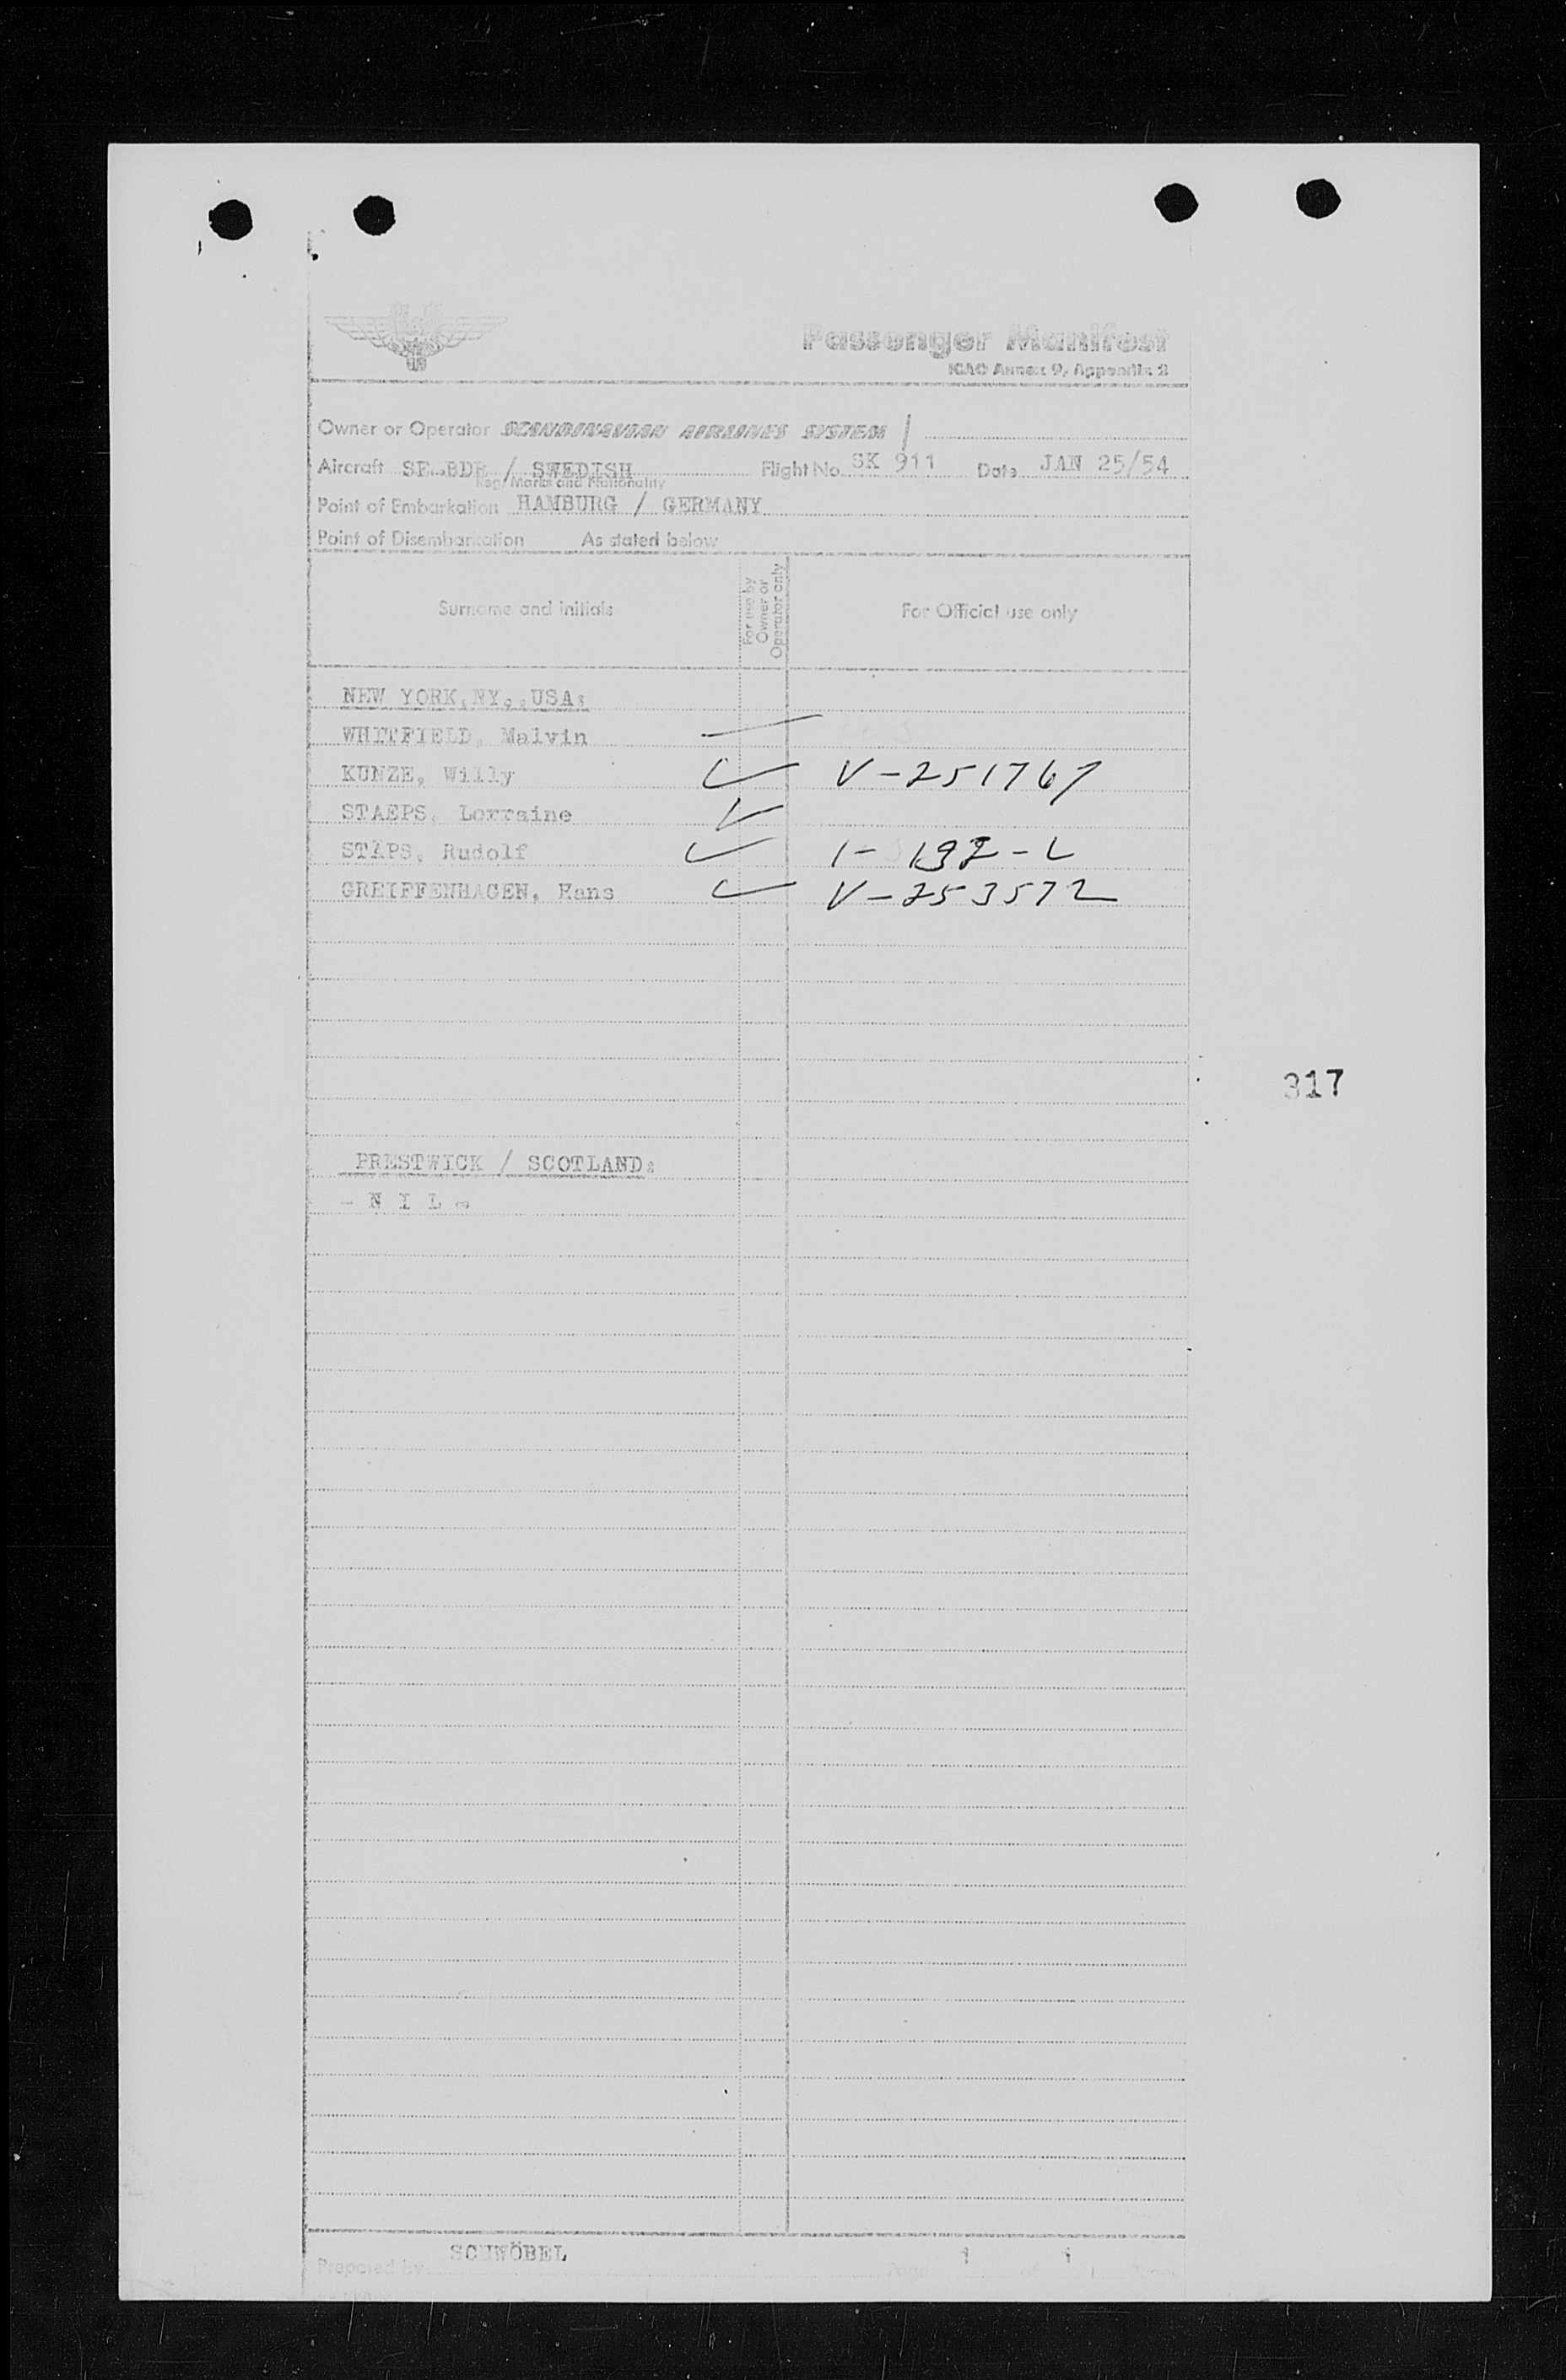 Passenger Manifest
ICAO Annex 9, Appendix 2
Owner or Operator SCANDINAVIAN AIRLINES SYSTEM /
Aircraft SE-BDR / SWEDISH Flight No. SK 911 Date JAN 25/54
Reg. Marks and Nationality
Point of Embarkation HAMBURG / GERMANY
Point of Disembarkation As stated below
Surname and initials For use by Owner or Operator only For Official use only
NEW YORK,NY.,USA:
WHITFIELD, Malvin
KUNZE, Willy V-251767
STAEPS, Lorraine
STAPS, Rudolf 1- 192-L
GREIFFENHAGEN, Hans V-253572
317
PRESTWICK / SCOTLAND:
- N I L -
SCHWÖBEL 1 1
Prepared by Page of